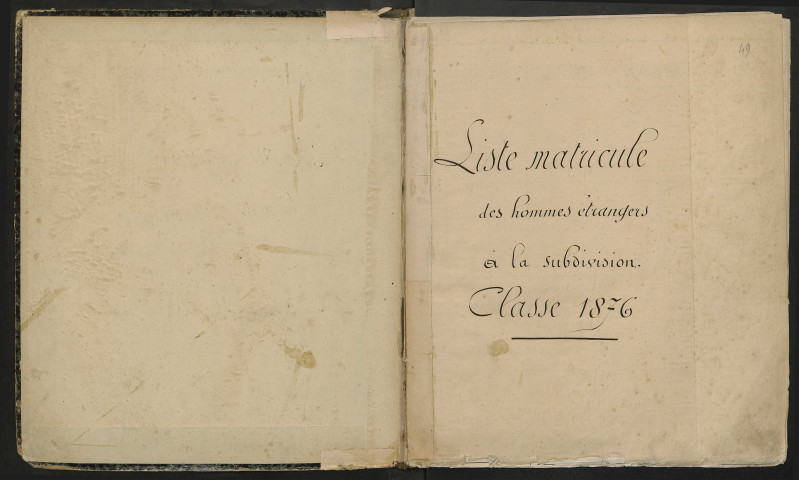 49
Liste matricule
des hommes étrangers
à la subdivision.
Classe 1876